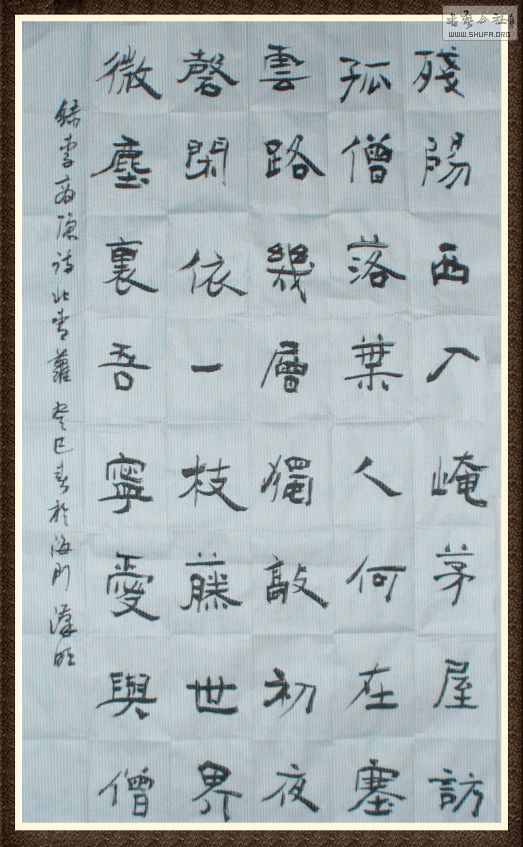 殘陽西入崦茅屋訪
孤僧落葉人何在塞
雲路幾層獨敲初夜
磬閑依一枝藤世界
微塵裏吾寧愛與僧
錄李商隱詩北青蘿癸巳春於海門
WWW.SHUFA.ORG